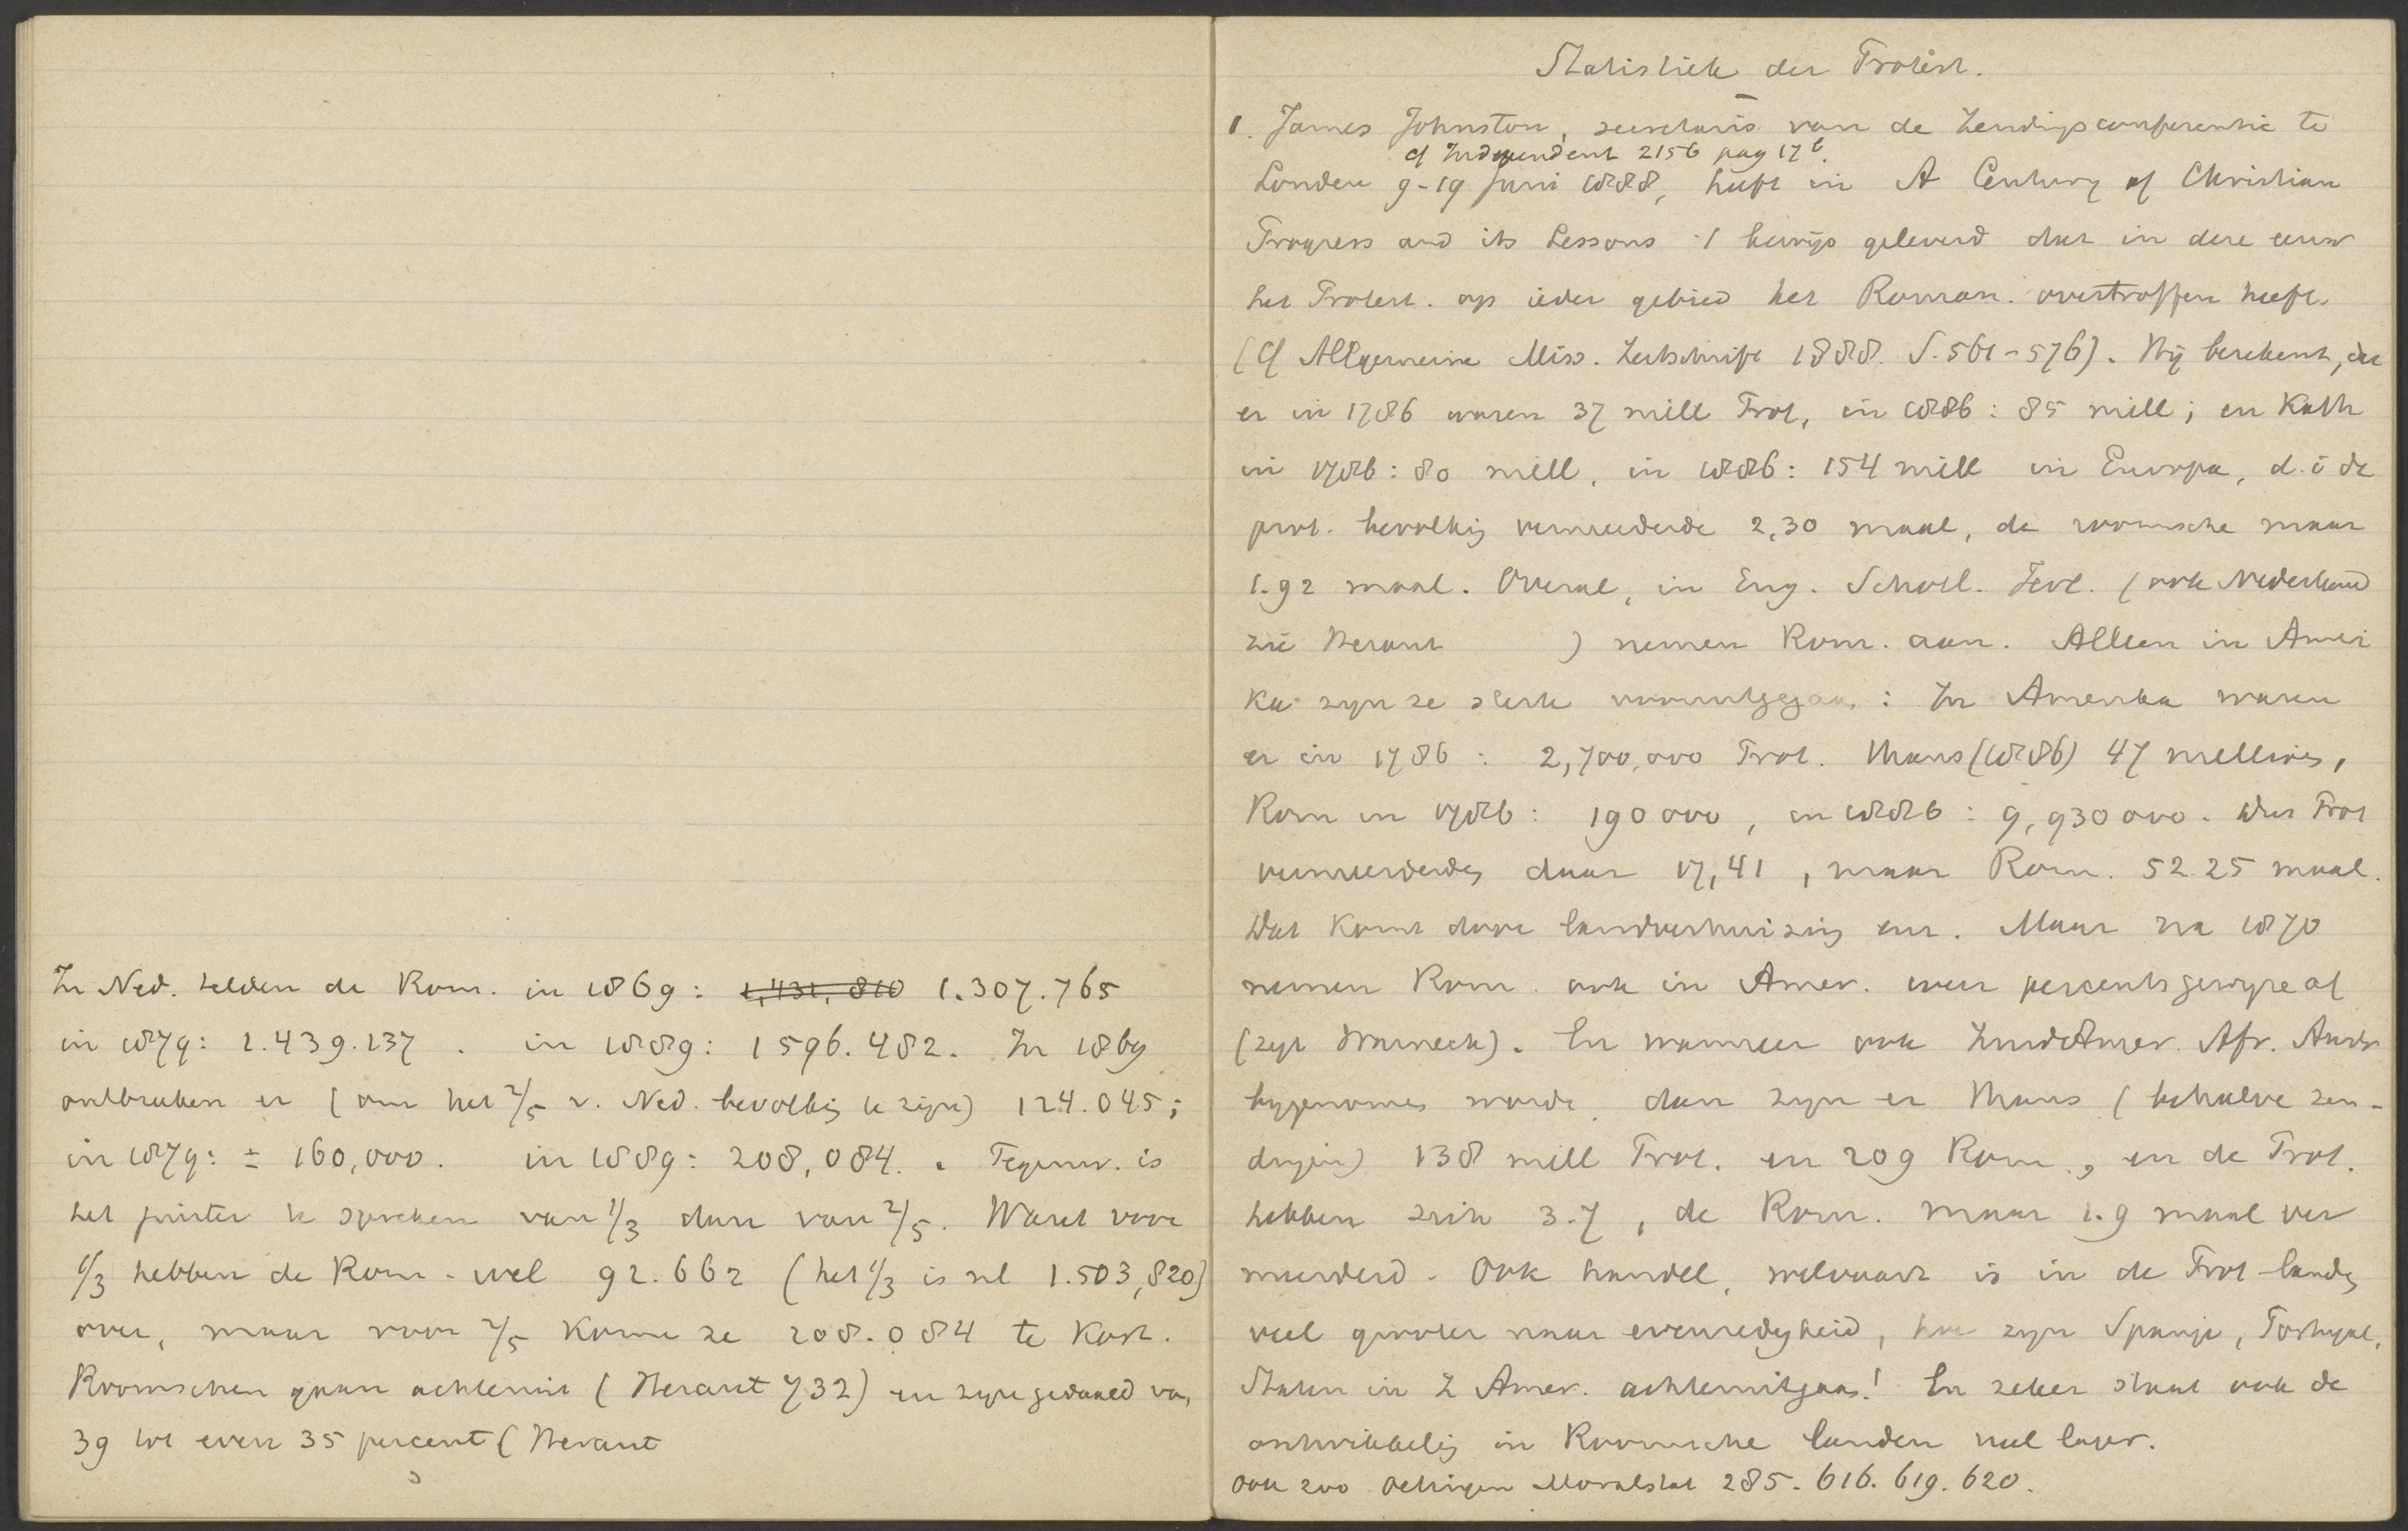 In Ned. telden de Rom. in 1869: 1,431,810 1.307.765
in 1879: 1.439.137. in 1889: 1596.482. In 1869
ontbraken er (om het 2/5 v. Ned. bevolkig te zijn) 124.045;
in 1879: ± 160,000. in 1889: 208,084. Tegenw. is
het juister te spreken van 1/3 dan van 2/5. Want voor
1/3 hebben de Rom. wel 92.662 (het 1/3 is nl 1.503,820)
over, maar voor 2/5 kome ze 208.084 te kort.
Roomschen gaan achteruit (Heraut 732) en zijn gedaald van
39 tot even 35 percent (Heraut
Statistiek der Protest.
1. James Johnston, secretaris van de Zendingsconferentie te
cf Independent 2156 pag 17b.
Londen 9-19 Juni 1888, heeft in A Century of Christian
Progress and its Lessons 't bewijs geleverd dat in deze eeuw
het Protest. op ieder gebied het Roman. overtroffen heeft.
(Cf Allgemeine Miss. Zeitschrift 1888. S. 561-576). Hij berekent, dat
er in 1786 waren 37 mill Prot, in 1886: 85 mill; en Kath
in 1786: 80 mill, in 1886: 154 mill in Europa, d.i de
prot. bevolkig vermeerderde 2,30 maal, de roomsche maar
1.92 maal. Overal, in Eng. Schotl. Ierl. (ook Nederland
zie Heraut ) nemen Rom. aan. Alleen in Ameri
ka zijn ze sterk vooruitgegaan: In Amerika waren
er in 1786: 2,700,000 Prot. thans (1886) 47 millioen,
Rom in 1786: 190 000, in 1886: 9,930 000. Dus Prot
vermeerderden daar 17,41, maar Rom. 52.25 maal.
Dat komt door landverhuizing enz. Maar na 1870
nemen Rom. ook in Amer. weer percentsgewijze af
(zegt Warneck). En wanneer ook ZuidAmer. Afr. Austr
bygenomen worde, dan zyn er thans (behalve zen-
dingen) 138 mill Prot. en 209 Rom., en de Prot.
hebben zich 3.7, de Rom. maar 1.9 maal ver
meerderd. Ook handel, welvaart is in de Prot-landen
veel grooter naar evenredigheid, hoe zyn Spanje, Portugal,
Staten in Z Amer. achteruitgaan! En zeker staat ook de
ontwikkeling in Roomsche landen veel lager.
Ook zoo Oettingen Moralstat 285. 616. 619. 620.